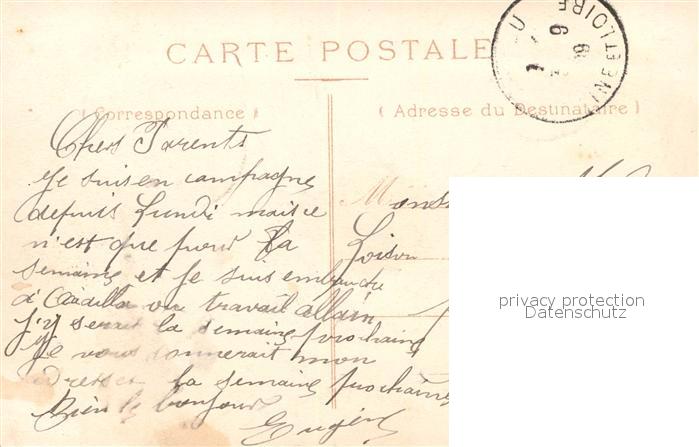 CARTE POSTALE
(Correspondance)
(Adresse du Destinataire)
NE ET LOIRE
6 - 9
1
Chers Parents
Je suis en campagne
depuis Lundi mais ce
n'est que pour la
semaine et je suis embauché
a travail
j'y serait la semaine prochaine
je vous donnerait mon
adresse la semaine prochaine
Bien le bonjour
Eugène
Mons
Loison
privacy protection
Datenschutz